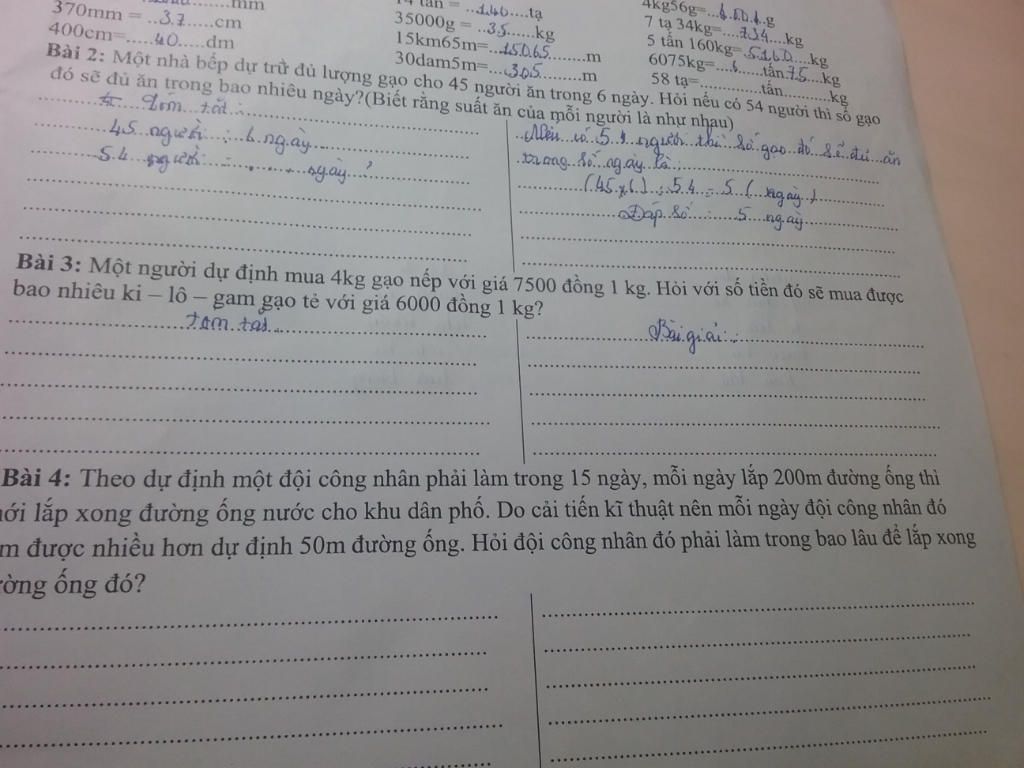 mm
14 tấn = ...140....tạ
4kg56g=...g
370mm = ..37.....cm
35000g = ..35......kg
7 tạ 34kg=...734....kg
400cm=.....40.....dm
15km65m=...15065.........m
5 tấn 160kg=.5160....kg
30dam5m=....305..........m
6075kg=...6......tấn75...kg
58 tạ=............tấn..........kg
Bài 2: Một nhà bếp dự trữ đủ lượng gạo cho 45 người ăn trong 6 ngày. Hỏi nếu có 54 người thì số gạo
đó sẽ đủ ăn trong bao nhiêu ngày?(Biết rằng suất ăn của mỗi người là như nhau)
tóm tắt:
45 người : 6 ngày
54 người : ....... ngày?
Nếu có 54 người thì số gạo đó sẽ đủ ăn
trong số ngày là:
(45 x 6) : 54 = 5 (ngày)
Đáp số : 5 ngày
Bài 3: Một người dự định mua 4kg gạo nếp với giá 7500 đồng 1 kg. Hỏi với số tiền đó sẽ mua được
bao nhiêu ki – lô – gam gạo tẻ với giá 6000 đồng 1 kg?
tóm tắt
Bài giải:
Bài 4: Theo dự định một đội công nhân phải làm trong 15 ngày, mỗi ngày lắp 200m đường ống thì
ới lắp xong đường ống nước cho khu dân phố. Do cải tiến kĩ thuật nên mỗi ngày đội công nhân đó
m được nhiều hơn dự định 50m đường ống. Hỏi đội công nhân đó phải làm trong bao lâu để lắp xong
ờng ống đó?